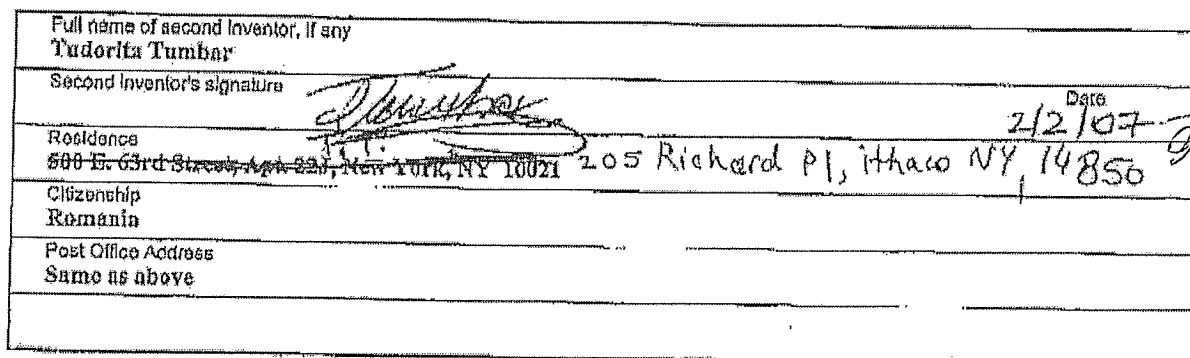 Full name of second inventor, if any
Tudorita Tumbar
Second inventor's signature
Date
2/2/07
Residence
600 E. 63rd Street, Apt. 22J, New York, NY 10021 205 Richard Pl, ithaca NY, 14850
Citizenship
Romania
Post Office Address
Same as above